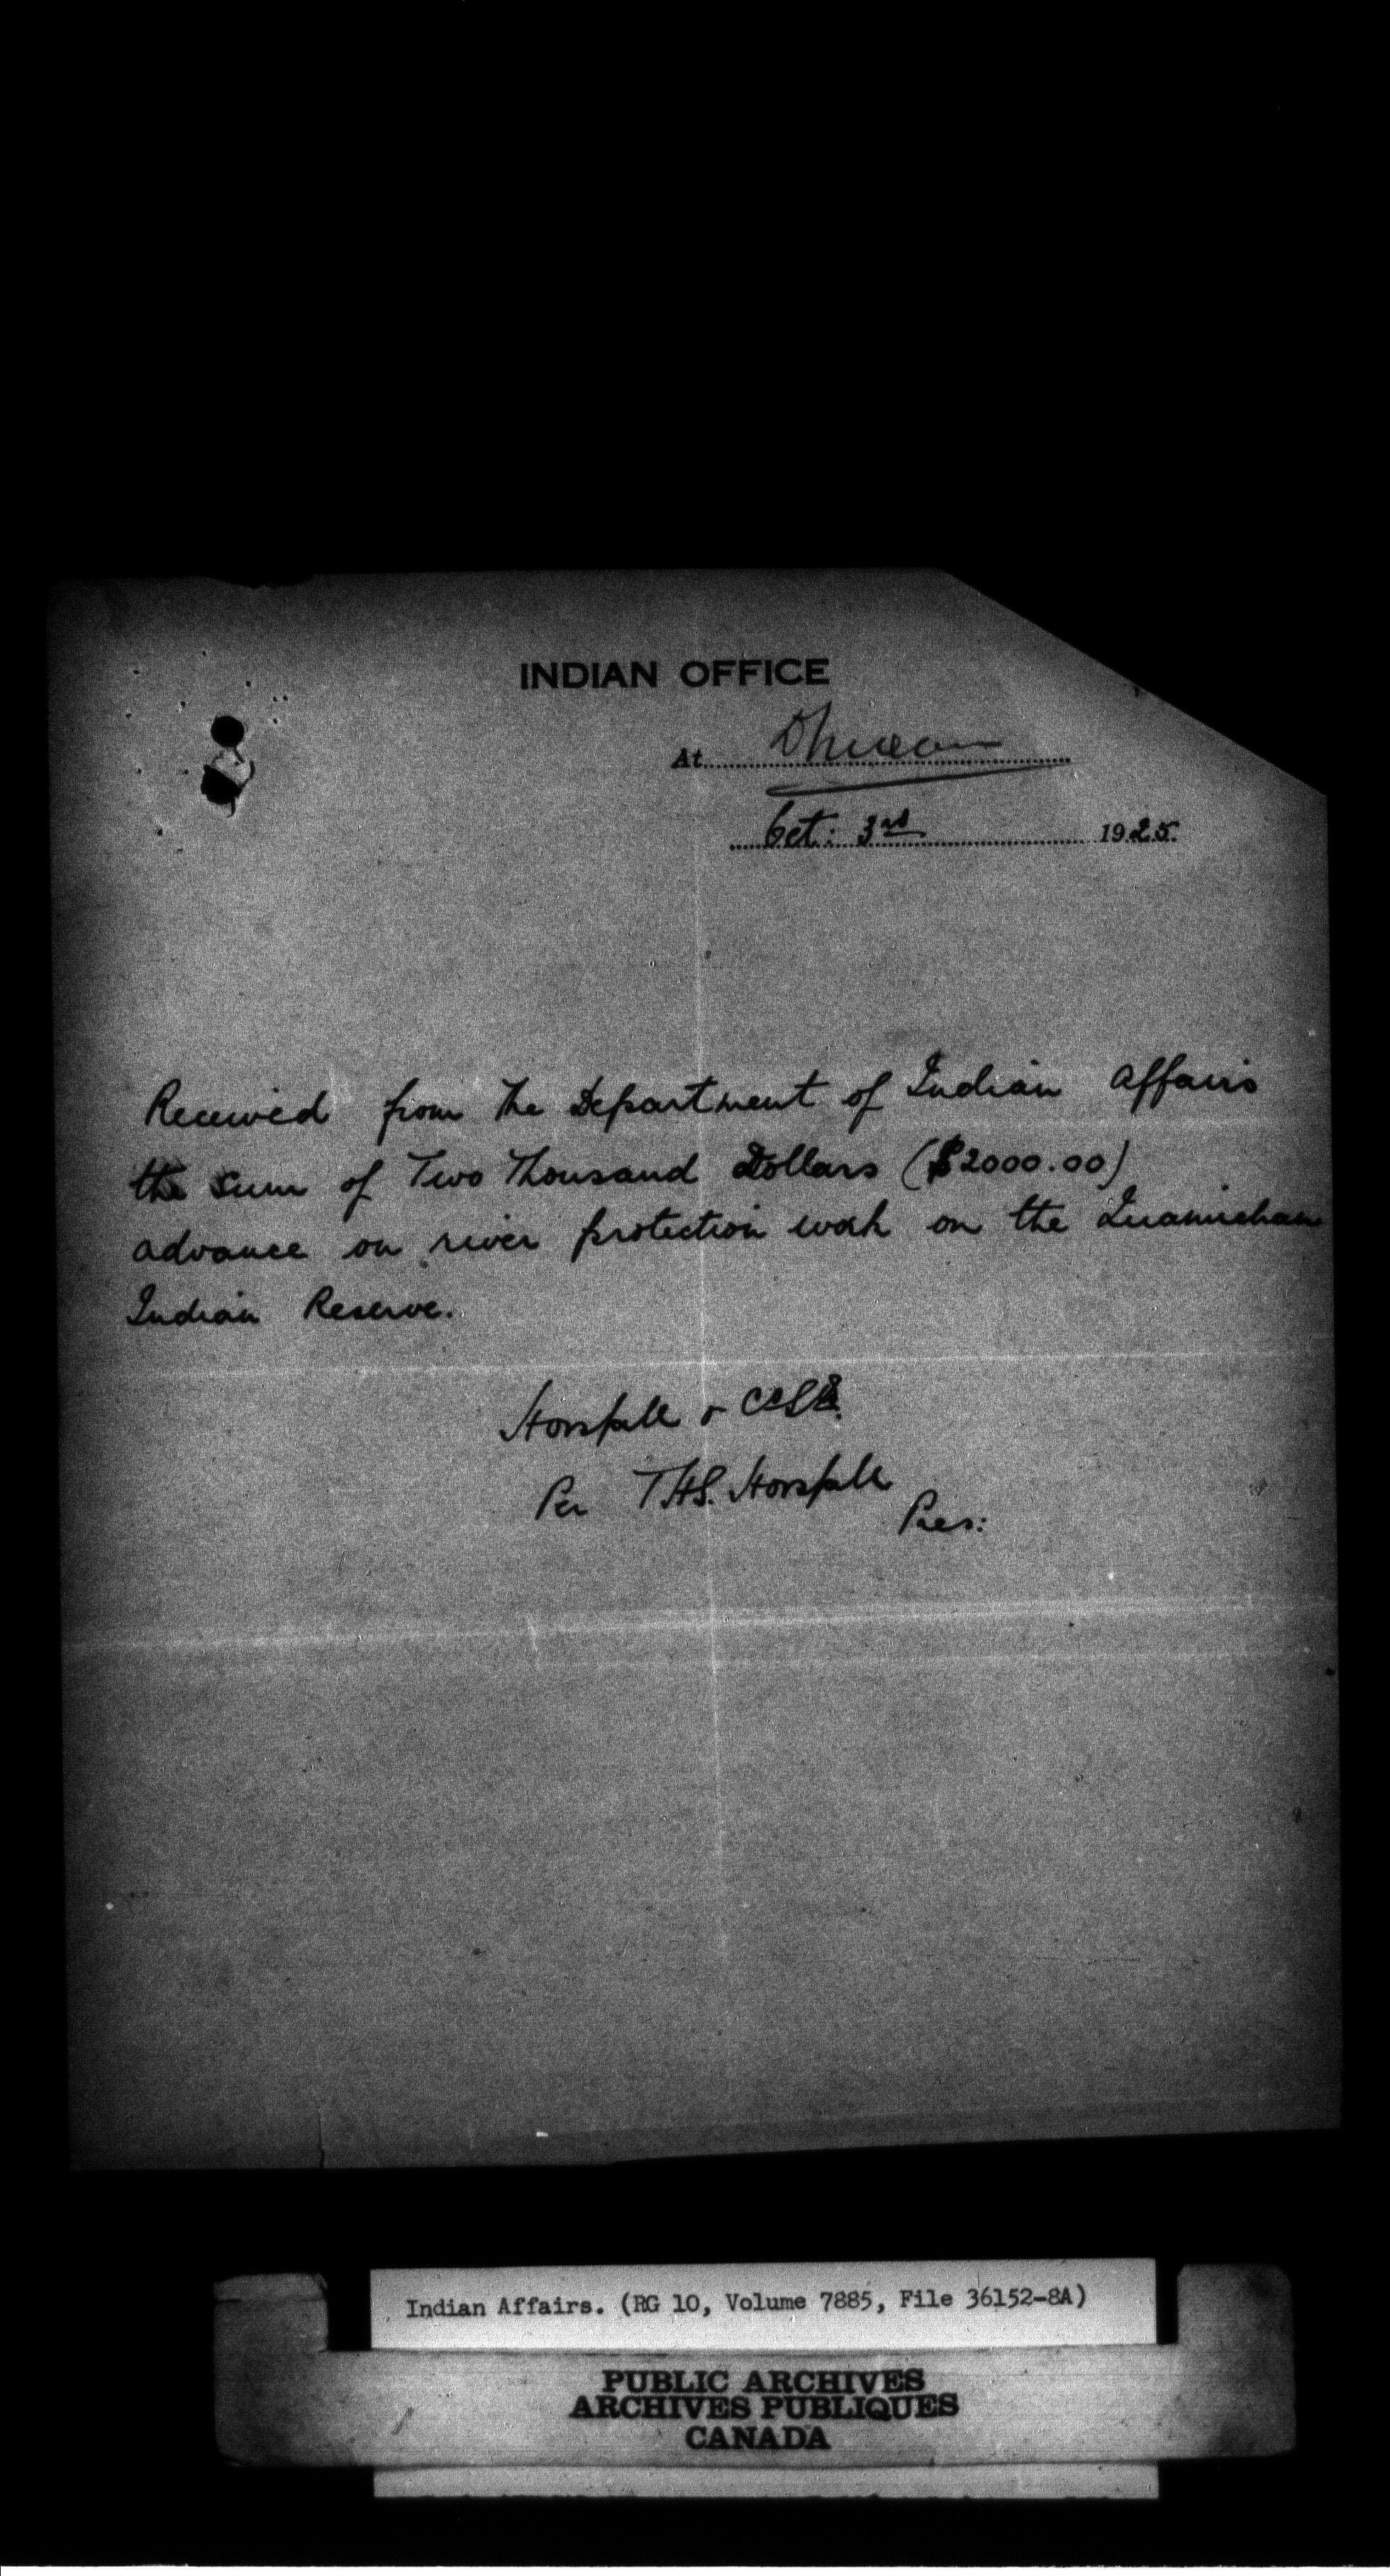 INDIAN OFFICE
At Duncan
Oct: 3rd 1925.
Received from the Department of Indian Affairs
the sum of Two Thousand Dollars ($2000.00)
advance on river protection work on the Quamichan
Indian Reserve.
Horsfall &
Per T.H.S. Horsfall
Pres:
Indian Affairs. (RG 10, Volume 7885, File 36152-8A)
PUBLIC ARCHIVES
ARCHIVES PUBLIQUES
CANADA